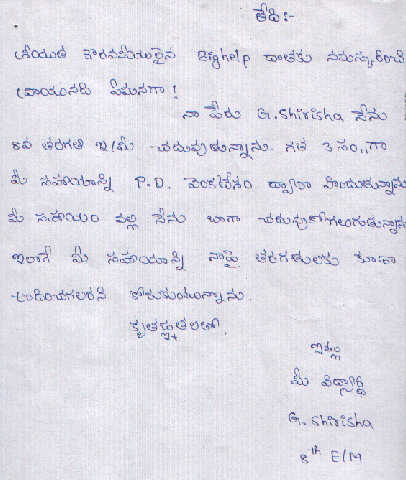 తేది:-
శ్రీయుత గౌరవనీయులైన Bighelp దాతకు నమస్కరించి
వ్రాయునది ఏమనగా!
నా పేరు G. Shirisha నేను
8వ తరగతి E/M చదువుతున్నాను. గత 3 సం,,గా
మీ సహాయాన్ని P.D. వెంకటేశం ద్వారా పొందుతున్నాను
మీ సహాయం వల్ల నేను బాగా చదువుకోగలుగుతున్నాను
ఇలాగే మీ సహాయాన్ని నాపై తరగతులకు కూడా
అందించగలరని కోరుకుంటున్నాను.
కృతజ్ఞతలతో.
ఇట్లు
మీ విద్యార్థి
G. Shirisha
8th E/M